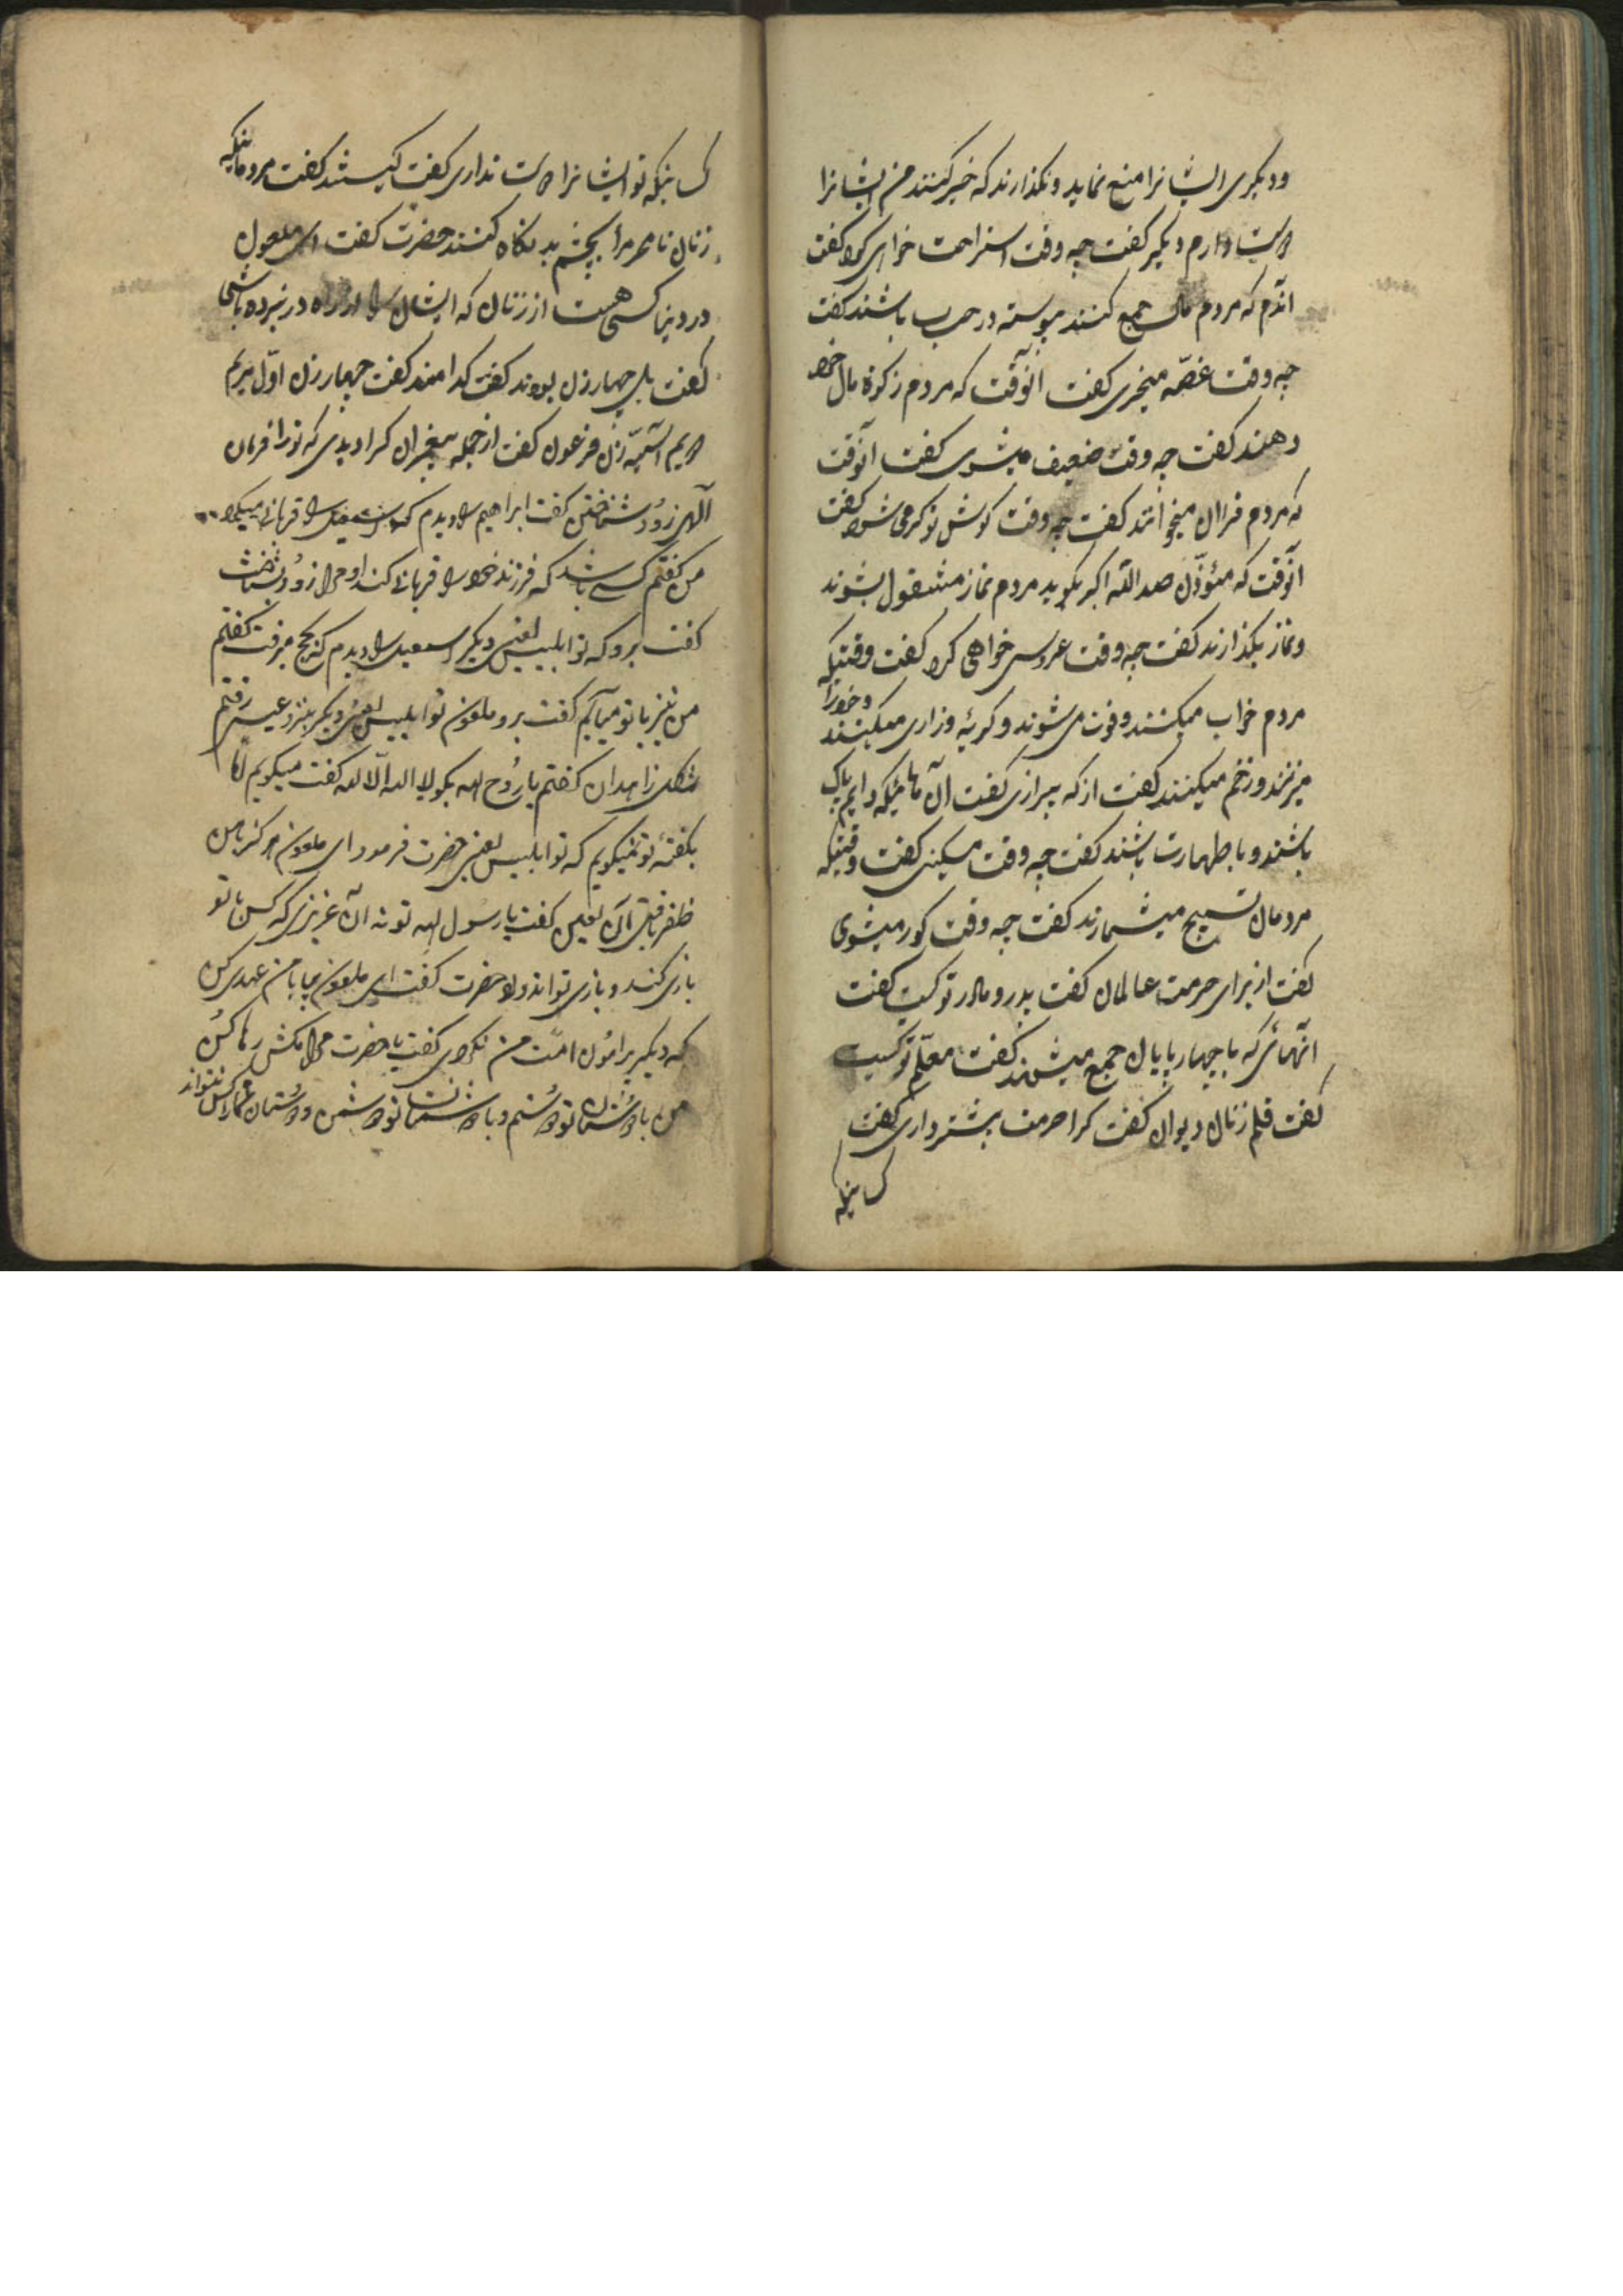 ودیکری ایشانرا منع نماید ونکذارند که خیر کنند من ایشانرا
دوست دارم دیکر کفت چه وقت استراحت خواهی کرد کفت
اندم که مردم مال جمع کنند پیوسته در حساب باشند کفت
چه وقت غصّه میخری کفت انوقت که مردم زکوة مال خود
دهند کفت چه وقت ضعیف میشوی کفت آنوقت
که مردم قران میخوانند کفت چه وقت کوش تو کر می شود کفت
انوقت که مئوذّن صد الله اکبر بکوید مردم نماز مشغول بشوند
ونماز بکذارند کفت چه وقت عروسی خواهی کرد کفت وقتیکه
مردم خواب میکنند وفوت می شوند وکریه وزاری میکنند وخودرا
میزنند وزخم میکنند کفت از که بیزاری کفت آن هائیکه دایم پاک
باشند وبا طهارت باشند کفت چه وقت مسکینی کفت وقتیکه
مردمان تسبیح میشمارند کفت چه وقت کور میشوی
کفت از برای حرمت عالمان کفت پدر ومادر تو کیست کفت
انهائی که با چهار پایان جمع میشوند کفت معلّم تو کیست
کفت قلم زنان دیوان کفت کرا حرمت بیشتر داری کفت
کسانیکه
کسانیکه تو ایشانرا دوست نداری کفت کیستند کفت مردمانیکه
زنان نامحرم را بچشم بد نکاه کنند حضرت کفت ای ملعون
در دنیا کسی هست از زنان که ایشان را از راه در نبرده باشی
کفت بلی چهار زن بودند کفت کدامند کفت چهار زن اوّل مریم
دویم آسیّه زن فرعون کفت از جمله پیغمبران کرا دیدی که تورا فرمان
آلهی زود شناختن کفت ابراهیم را دیدم که اسمعیل را قربانی میکرد
من کفتم کسی باشد که فرزند خود را قربانی کند او مرا زود بشناخت
کفت برو که تو ابلیس لعینی دیکر اسمعیل را دیدم که بحج میرفت کفتم
من نیز با تو میآیم کفت برو ملعون تو ابلیس لعینی دیکر بنزد عیسی رفتم
بشکل زاهدان کفتم یا رُوح الله بکو لا اله الّا الله کفت میکویم امّا
بکفتهٔ تو نمیکویم که تو ابلیس لعینی حضرت فرمود ای ملعون هرکز با من
ظفر یافتی آن لعین کفت یا رسول الله تو نه آن عزیزی که کسی با تو
بازی کند وبازی تواند داد حضرت کفت ای ملعون بیا با من عهدی کن
که دیکر پیرامُون امّت من نکردی کفت یا حضرت مرا مکش رها کُن
من با دوستان تو دوستم وبا دشمنان تو دشمن ودوستان شمارا کس نتواند